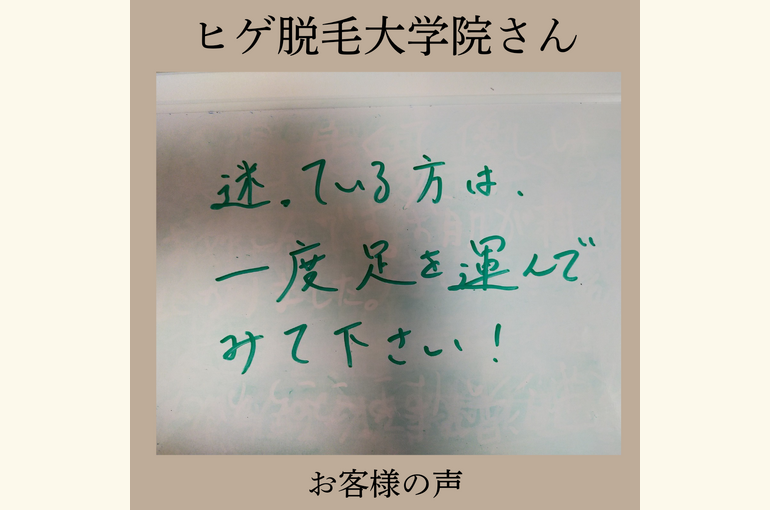 ヒゲ脱毛大学院さん
迷っている方は、
一度足を運んで
みて下さい！
お客様の声